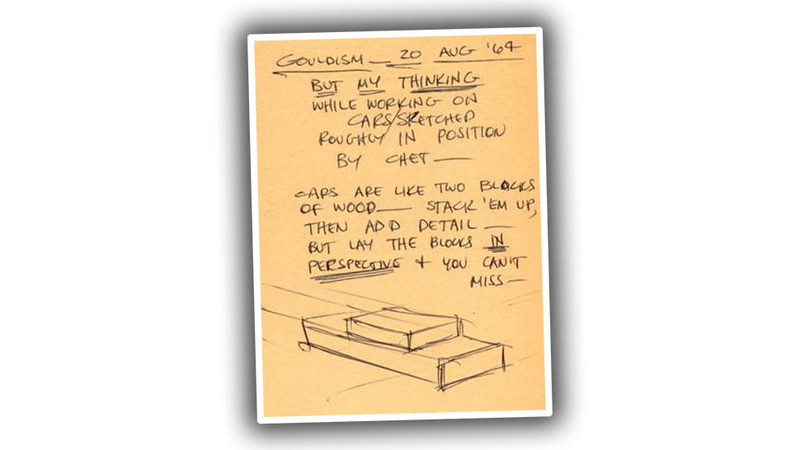 GOULDISM — 20 AUG '64
BUT MY THINKING
WHILE WORKING ON
CARS/SKETCHED
ROUGHLY IN POSITION
BY CHET —
CARS ARE LIKE TWO BLOCKS
OF WOOD — STACK 'EM UP,
THEN ADD DETAIL —
BUT LAY THE BLOCKS IN
PERSPECTIVE + YOU CAN'T
MISS —